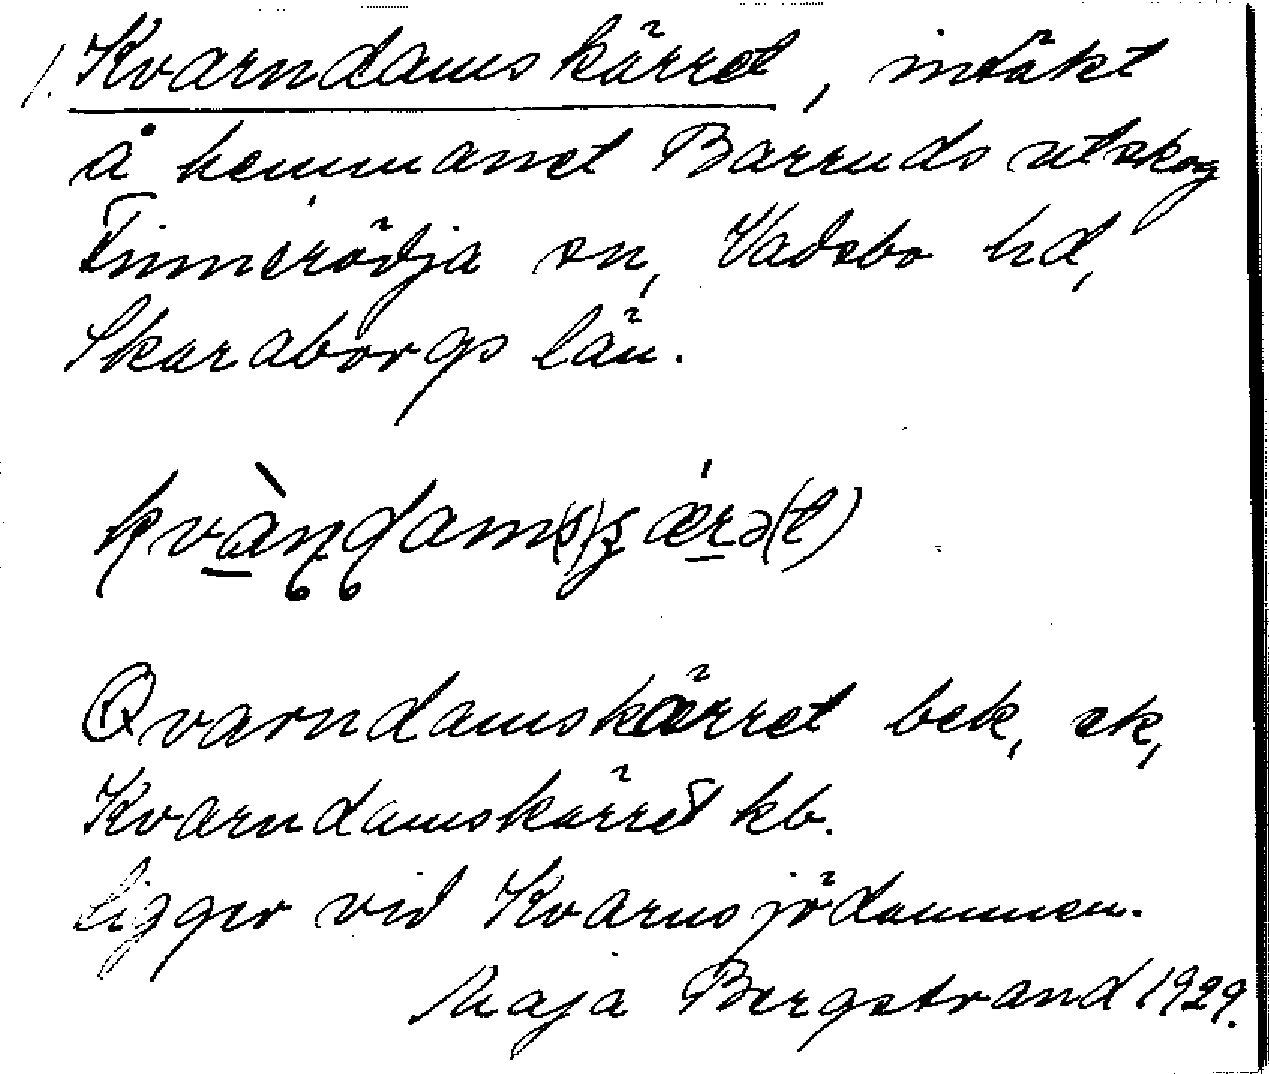 1. Kvarndamskärret, intäkt
å hemmanet Barruds utskog
Finnerödja sn, Vadsbo hd,
Skaraborgs län.
Qvarndamskärret bek, ek,
Kvarndamskärret kb.
ligger vid Kvarnsjödammen.
Maja Bergstrand 1929.